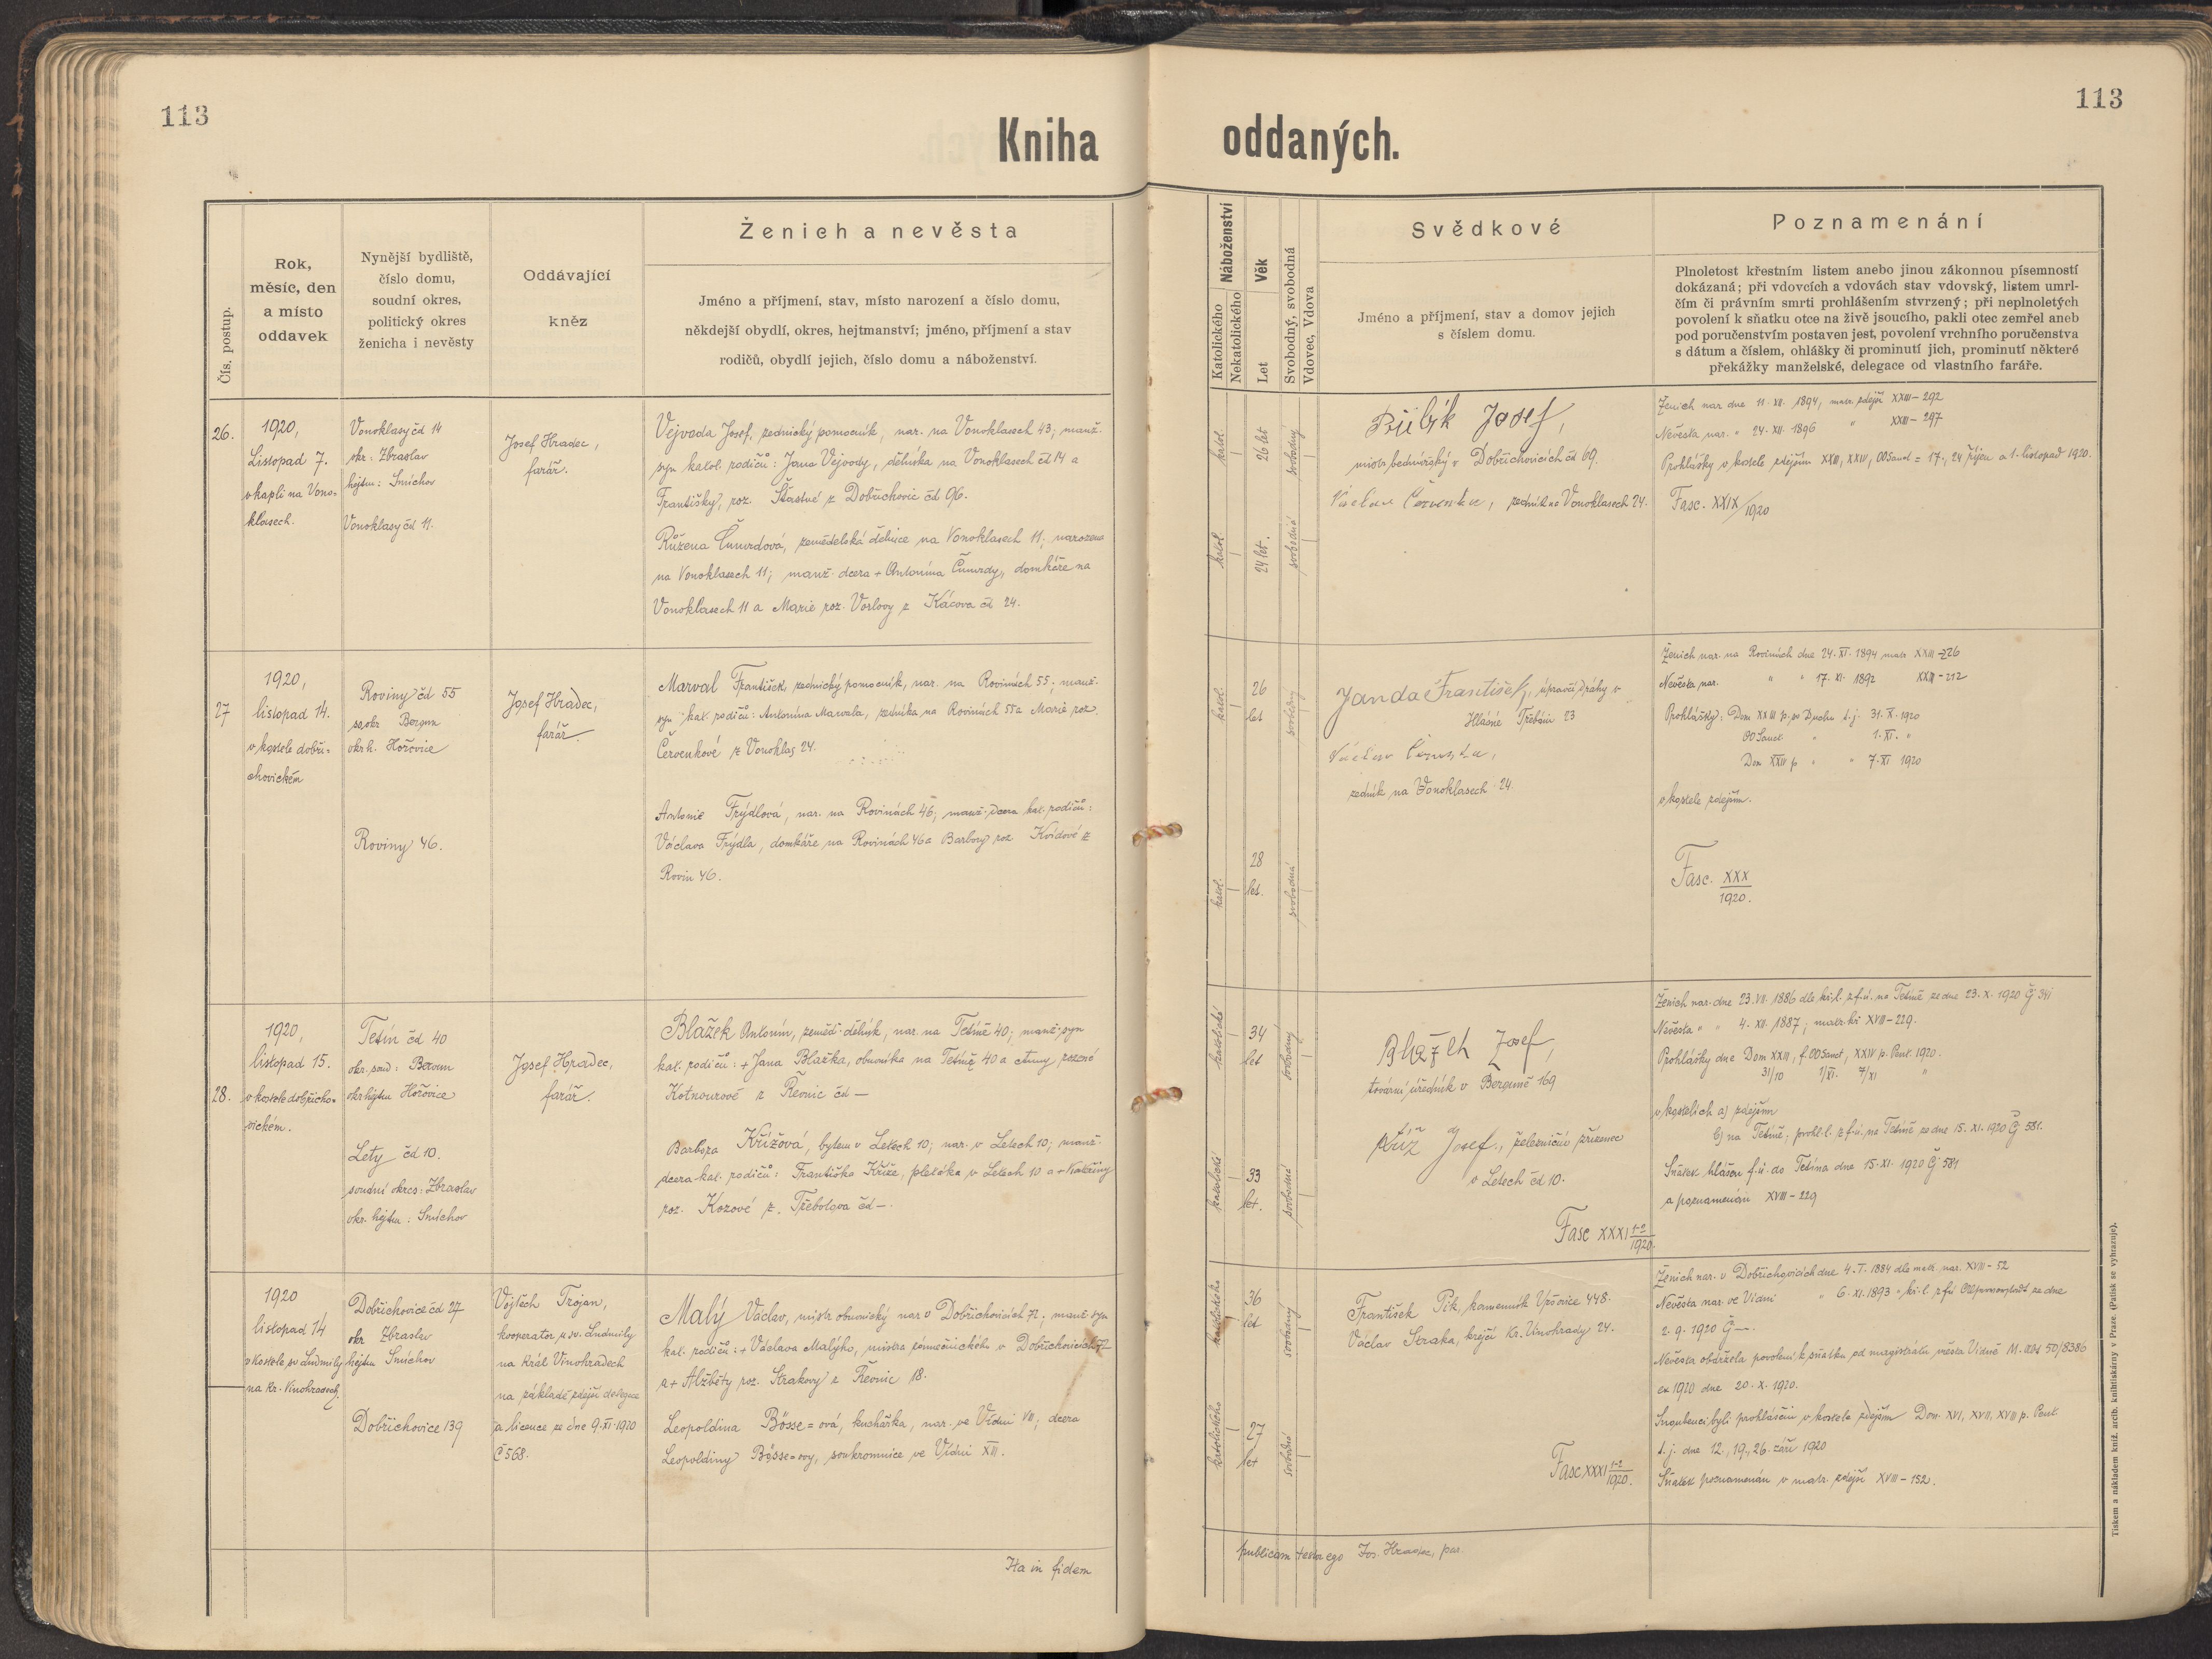 113
113
Kniha oddaných.
Čís. postup.
Rok, měsíc, den a místo oddavek
Nynější bydliště, číslo domu, soudní okres, politický okres ženicha i nevěsty
Oddávající kněz
Ženich a nevěsta
Jméno a příjmení, stav, místo narození a číslo domu,
někdejší obydlí, okres, hejtmanství; jméno, příjmení a stav
rodičů, obydlí jejich, číslo domu a náboženství.
Náboženství
Katolického
Nekatolického
Věk
Let
Svobodný, svobodná
Vdovec, Vdova
Svědkové
Jméno a příjmení, stav a domov jejich
s číslem domu.
Poznamenání
Plnoletost křestním listem anebo jinou zákonnou písemností
dokázaná; při vdovcích a vdovách stav vdovský, listem umrl-
čím či právním smrti prohlášením stvrzený; při neplnoletých
povolení k sňatku otce na živě jsoucího, pakli otec zemřel aneb
pod poručenstvím postaven jest, povolení vrchního poručenstva
s dátum a číslem, ohlášky či prominutí jich, prominutí některé
překážky manželské, delegace od vlastního faráře.
26.
1920,
Listopad 7.
v kapli na Vono-
klasech.
Vonoklasy čd 14
okr: Zbraslav
hejtm: Smíchov
Vonoklasy čd 11.
Josef Hradec,
farář.
Vejvoda Josef, zednický pomocník, nar. na Vonoklasech 43; manž.
syn katol. rodičů: Jana Vejvody, dělníka na Vonoklasech čd 14 a
Františky, roz. Šťastné z Dobřichovic čd 96.
Růžena Čmurdová, zemědělská dělnice na Vonoklasech 11; narozena
na Vonoklasech 11; manž. dcera + Antonína Čmurdy, domkáře na
Vonoklasech 11 a Marie roz. Vorlovy z Kácova čd 24.
katol.
26 let
svobodný
katol
24 let.
svobodná
Přibík Josef,
mistr bednářský v Dobřichovicích čd 69.
Václav Červenka, zedník na Vonoklasech 24.
Ženich nar dne 11. XII. 1894, matr. zdejší XXIII - 292
Nevěsta nar. " 24. XII. 1896 " XXIII - 297
Prohlášky v kostele zdejším XXIII, XXIV, OOSanct = 17., 24 října a 1. listopad 1920.
Fasc. XXIX/1920
27
1920,
listopad 14.
v kostele dobři-
chovickém
Roviny čd 55
so okr Beroun
okr h. Hořovice
Roviny 46.
Josef Hradec,
farář.
Marval František, zednický pomocník, nar. na Rovinách 55; manž.
syn kat. rodičů: Antonína Marvala, zedníka na Rovinách 55 a Marie roz.
Červenkové z Vonoklas 24.
Antonie Frýdlová, nar. na Rovinách 46; manž. dcera kat. rodičů:
Václava Frýdla, domkáře na Rovinách 46 a Barbory roz Kvídové z
Rovin 46.
katol.
26
let
svobodný
katol.
28
let.
svobodná
Janda František, úpravčí dráhy v
Hlásné Třebáni 23
Václav Červenka,
zedník na Vonoklasech 24.
Ženich nar. na Rovinách dne 24. XI. 1894 matr XXIII - 226
Nevěsta nar. " " 17. XI. 1892 XXIII - 212
Prohlášky: Dom XXIII p. sv Duchu t. j. 31. X. 1920
OO Sanct " 1. XI. "
Dom XXIV p " " 7. XI 1920
v kostele zdejším.
Fasc. XXX
1920.
28.
1920,
listopad 15.
v kostele dobřicho-
vickém.
Tetín čd 40
okr. soud: Beroun
okr hejtm Hořovice
Lety čd 10.
soudní okres: Zbraslav
okr. hejtm: Smíchov
Josef Hradec,
farář.
Blažek Antonín, zeměd. dělník, nar. na Tetíně 40; manž. syn
kat. rodičů: + Jana Blažka, obuvníka na Tetíně 40 a Anny rozené
Kotnourové z Řevnic čd —
Barbora Křížová, bytem v Letech 10; nar. v Letech 10; manž.
dcera kat. rodičů: Františka Kříže, pletáka v Letech 10 a + Kateřiny
roz. Kozové z. Třebotova čd —.
katolické
34
let
svobodný
katolické
33
let.
svobodná
Blažek Josef,
tovární úředník v Berouně 169
Kříž Josef., železniční zřízenec
v Letech čd 10.
Fasc XXXI 1-2
1920.
Ženich nar. dne 23. VII. 1886 dle kř. l. z f. ú. na Tetíně ze dne 23. X. 1920 Čj 341
Nevěsta " " 4. XII. 1887; matr. kř XVIII - 229.
Prohlášky dne Dom XXIII, f. OOSanct, XXIV p. Pent. 1920.
31/10 1/XI. 7/XI "
v kostelích a) zdejším
b) na Tetíně; prohl. l. z f. ú. na Tetíně ze dne 15. XI. 1920 Čj 581.
Sňatek hlášen f. ú. do Tetína dne 15. XI. 1920 Čj 581
a poznamenán XVIII - 229
1920
listopad 14
v kostele sv Ludmily
na Kr. Vinohradech.
Dobřichovice čd 27
okr Zbraslav
hejtm Smíchov
Dobřichovice 139
Vojtěch Trojan,
kooperator u sv. Ludmily
na Král Vinohradech
na základě zdejší delegace
a licence ze dne 9. XI. 1920
Č 568.
Malý Václav, mistr obuvnický nar v Dobřichovicích 72; manž. syn
kat. rodičů: + Václava Malýho, mistra řemeslnického v Dobřichovicích 72
a + Alžběty roz. Strakovy z Řevnic 18.
Leopoldina Bösse=ová, kuchařka, nar. ve Vídni VII; dcera
Leopoldiny Bösse=ovy, soukromnice ve Vídni XII.
katolického
36
let
svobodný
katolického
27
let
svobodná
František Pik, kameník Vršovice 448.
Václav Straka, krejčí Kr. Vinohrady 24.
Fasc XXXI 1-2
1920.
Ženich nar. v Dobřichovicích dne 4. I. 1884 dle matr. nar. XVIII - 52
Nevěsta nar. ve Vídni " 6. XI. 1893 " kř. l. z fú ze dne
2. 9. 1920 Č —.
Nevěsta obdržela povolení k sňatku od magistrátu města Vídně M. Abt 50/8386
ex 1920 dne 20. X. 1920.
Snoubenci byli prohlášeni v kostele zdejším Dom. XVI, XVII, XVIII p. Pent.
t. j. dne 12., 19., 26. září 1920
Sňatek poznamenán v matr. zdejší XVIII - 152.
Ita in fidem
publicam testor ego Jos. Hradec, par.
Tiskem a nákladem kníž. arcib. knihtiskárny v Praze. (Patisk se vyhrazuje).